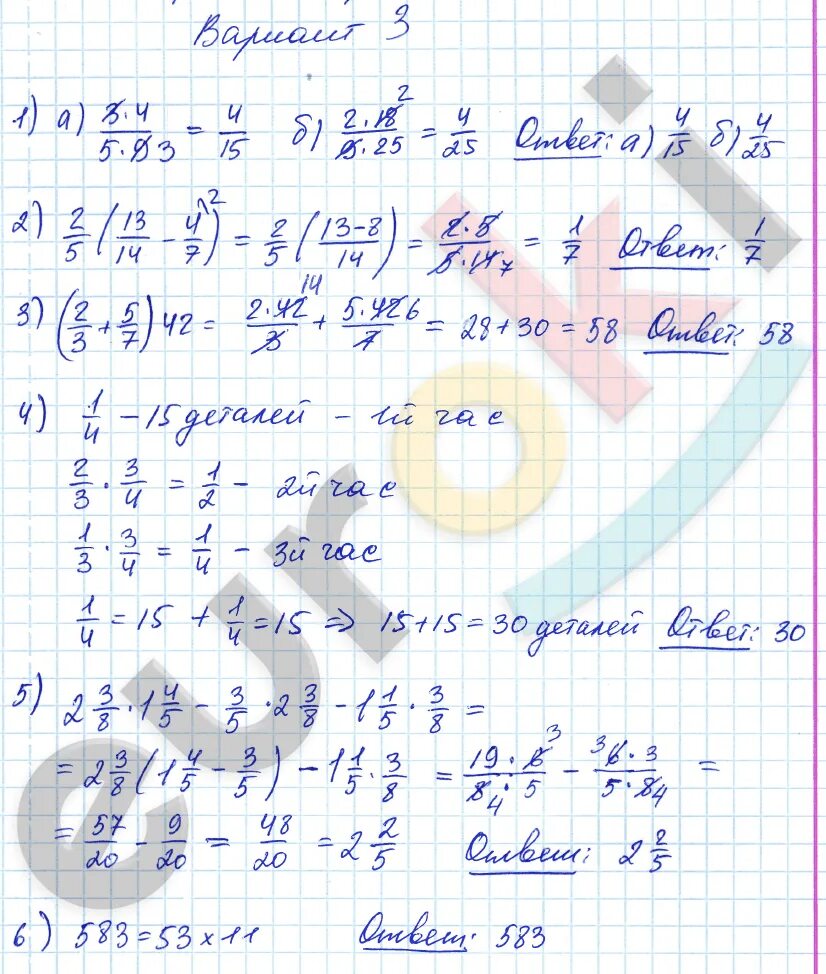 Вариант 3
1) а) (3·4)/(5·9 3) = 4/15 б) (2·18 2)/(9·25) = 4/25 Ответ: а) 4/15 б) 4/25
2) 2/5 (13/14 − 4/7 \2) = 2/5 ((13−8)/14) = (2·5)/(5·14 7) = 1/7 Ответ: 1/7
3) (2/3 + 5/7) 42 = (2·42 14)/3 + (5·42 6)/7 = 28+30 = 58 Ответ: 58
4) 1/4 – 15 деталей – 1й час
2/3 · 3/4 = 1/2 – 2й час
1/3 · 3/4 = 1/4 – 3й час
1/4 = 15 + 1/4 = 15 => 15+15 = 30 деталей Ответ: 30
5) 2 3/8 · 1 4/5 − 3/5 · 2 3/8 − 1 1/5 · 3/8 =
= 2 3/8 (1 4/5 − 3/5) − 1 1/5 · 3/8 = (19·6 3)/(8 4·5) − (3 6·3)/(5·8 4) =
= 57/20 − 9/20 = 48/20 = 2 2/5 Ответ: 2 2/5
6) 583 = 53 x 11 Ответ: 583
euroki